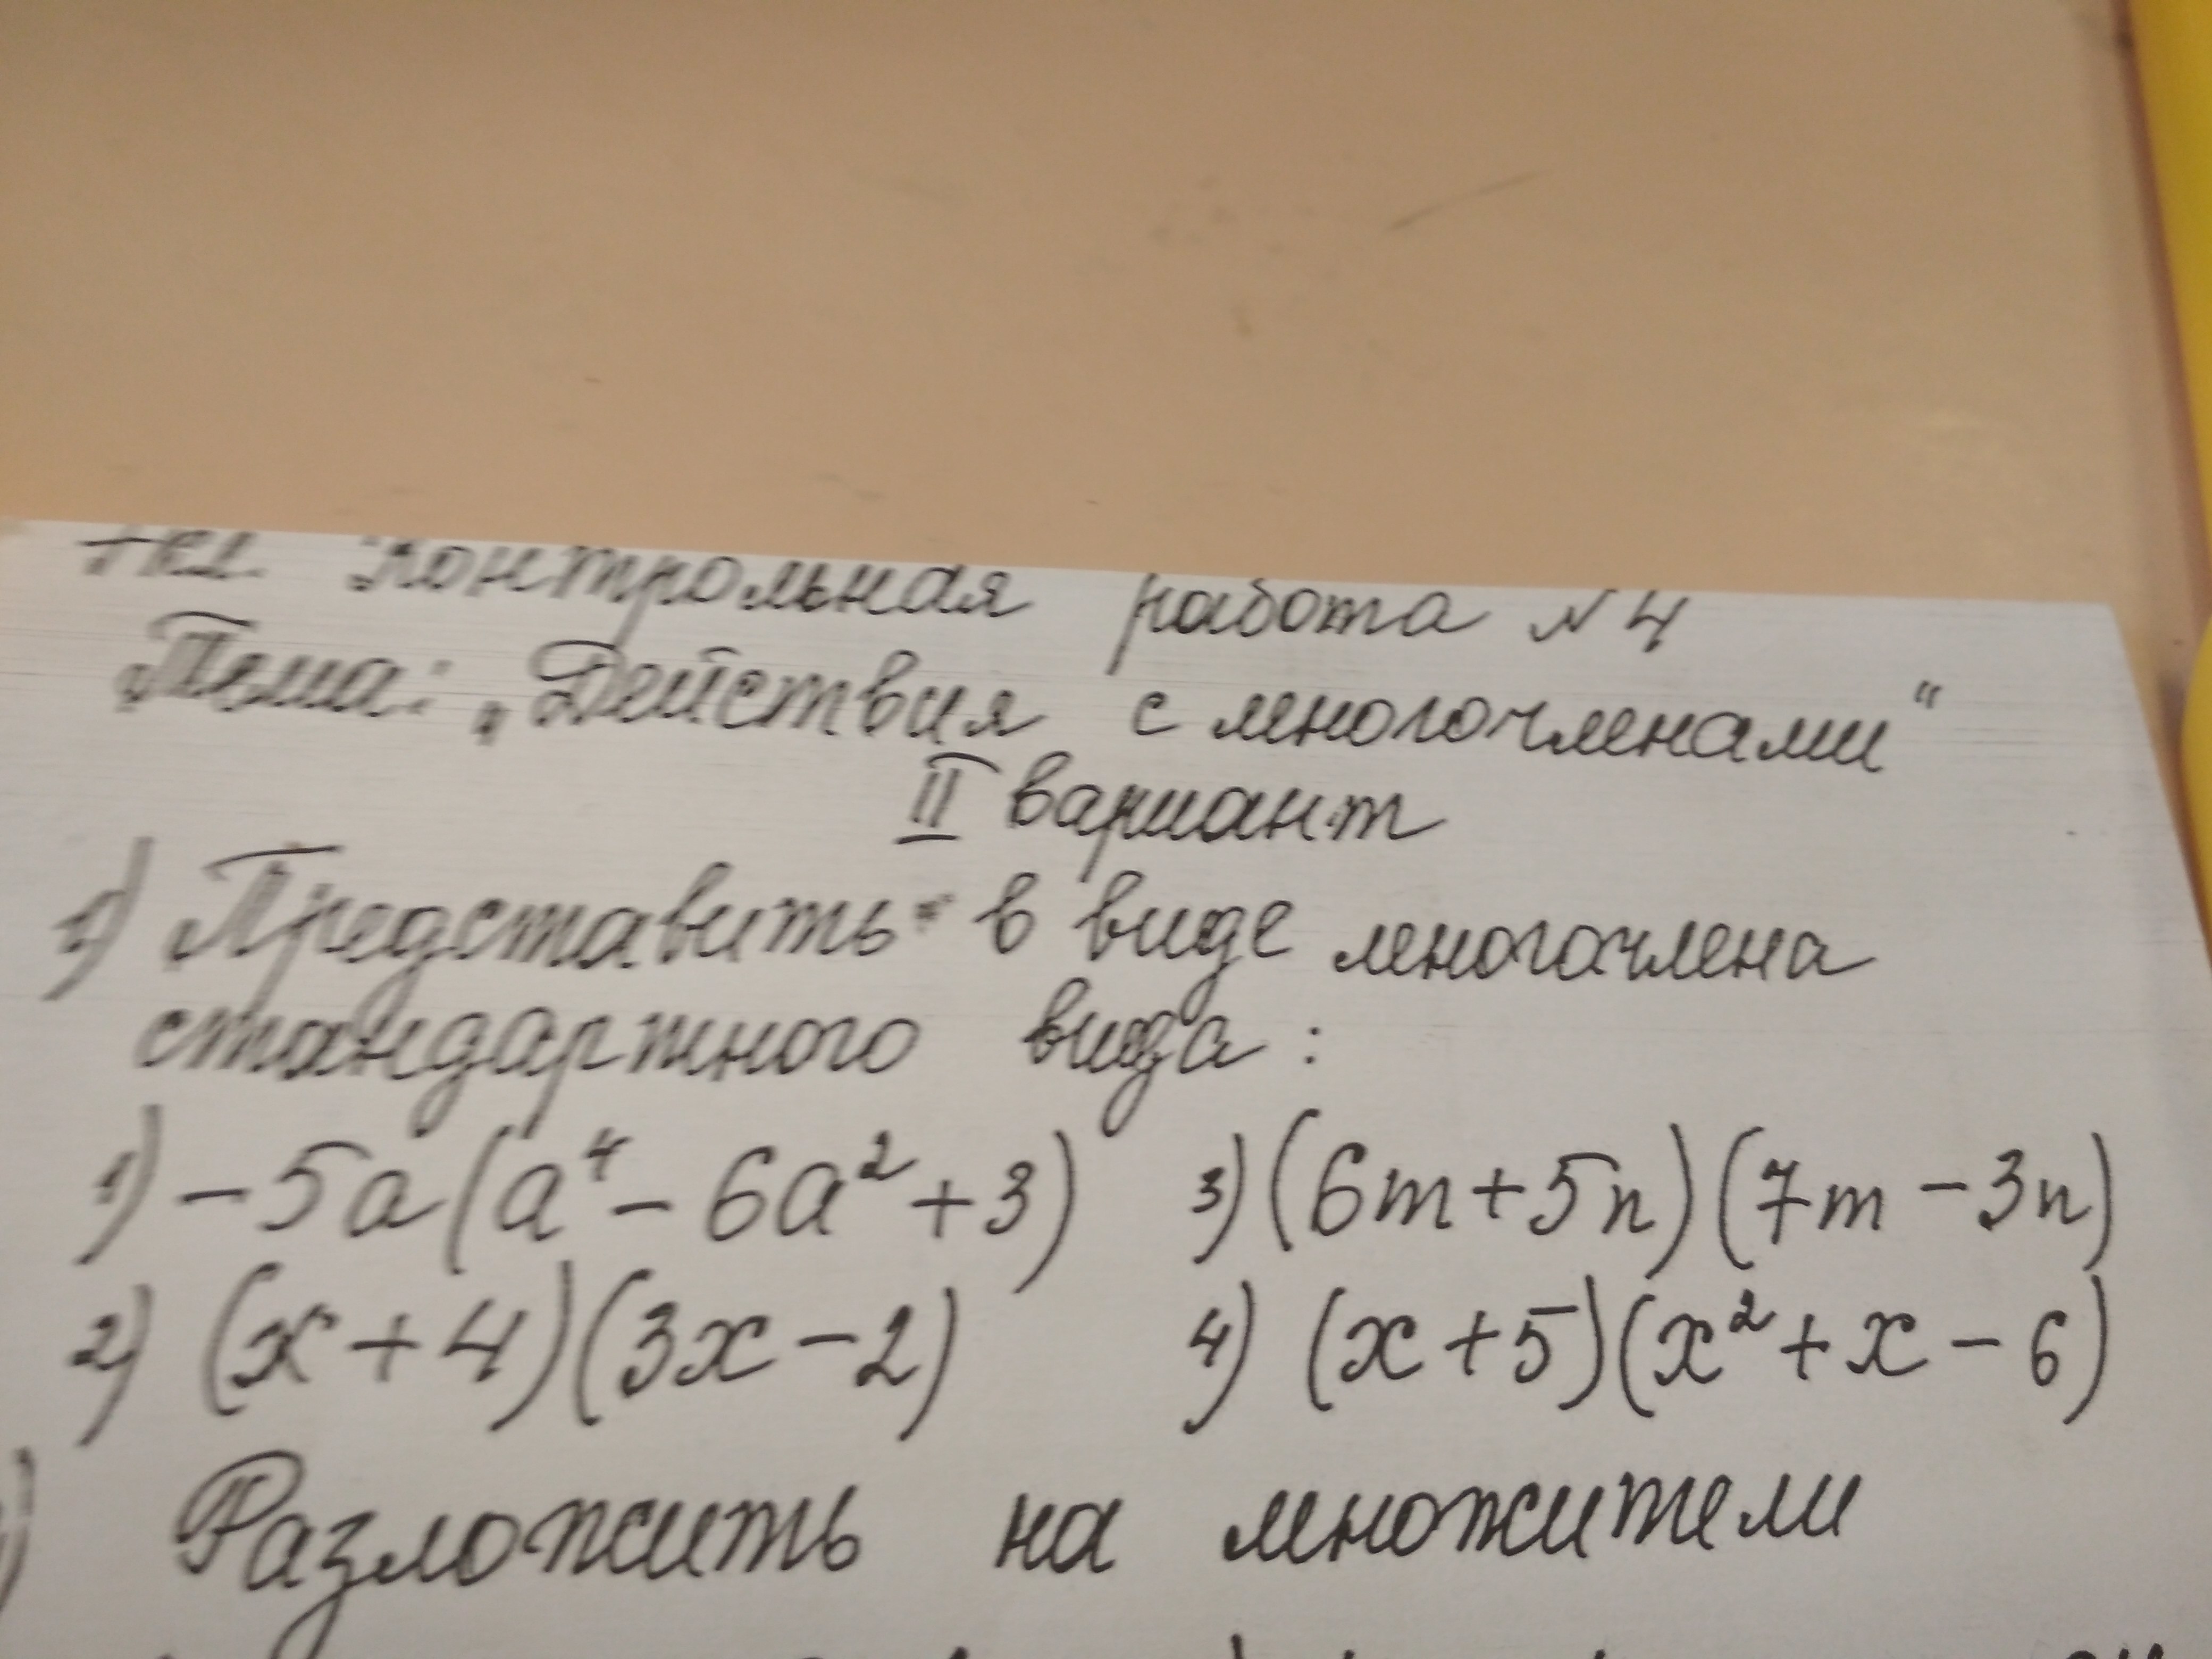 7кл. Контрольная работа №4
Тема: „Действия с многочленами“
II вариант
1) Представить в виде многочлена
стандартного вида:
1) -5a(a⁴-6a²+3) 3) (6m+5n)(7m-3n)
2) (x+4)(3x-2) 4) (x+5)(x²+x-6)
) Разложить на множители